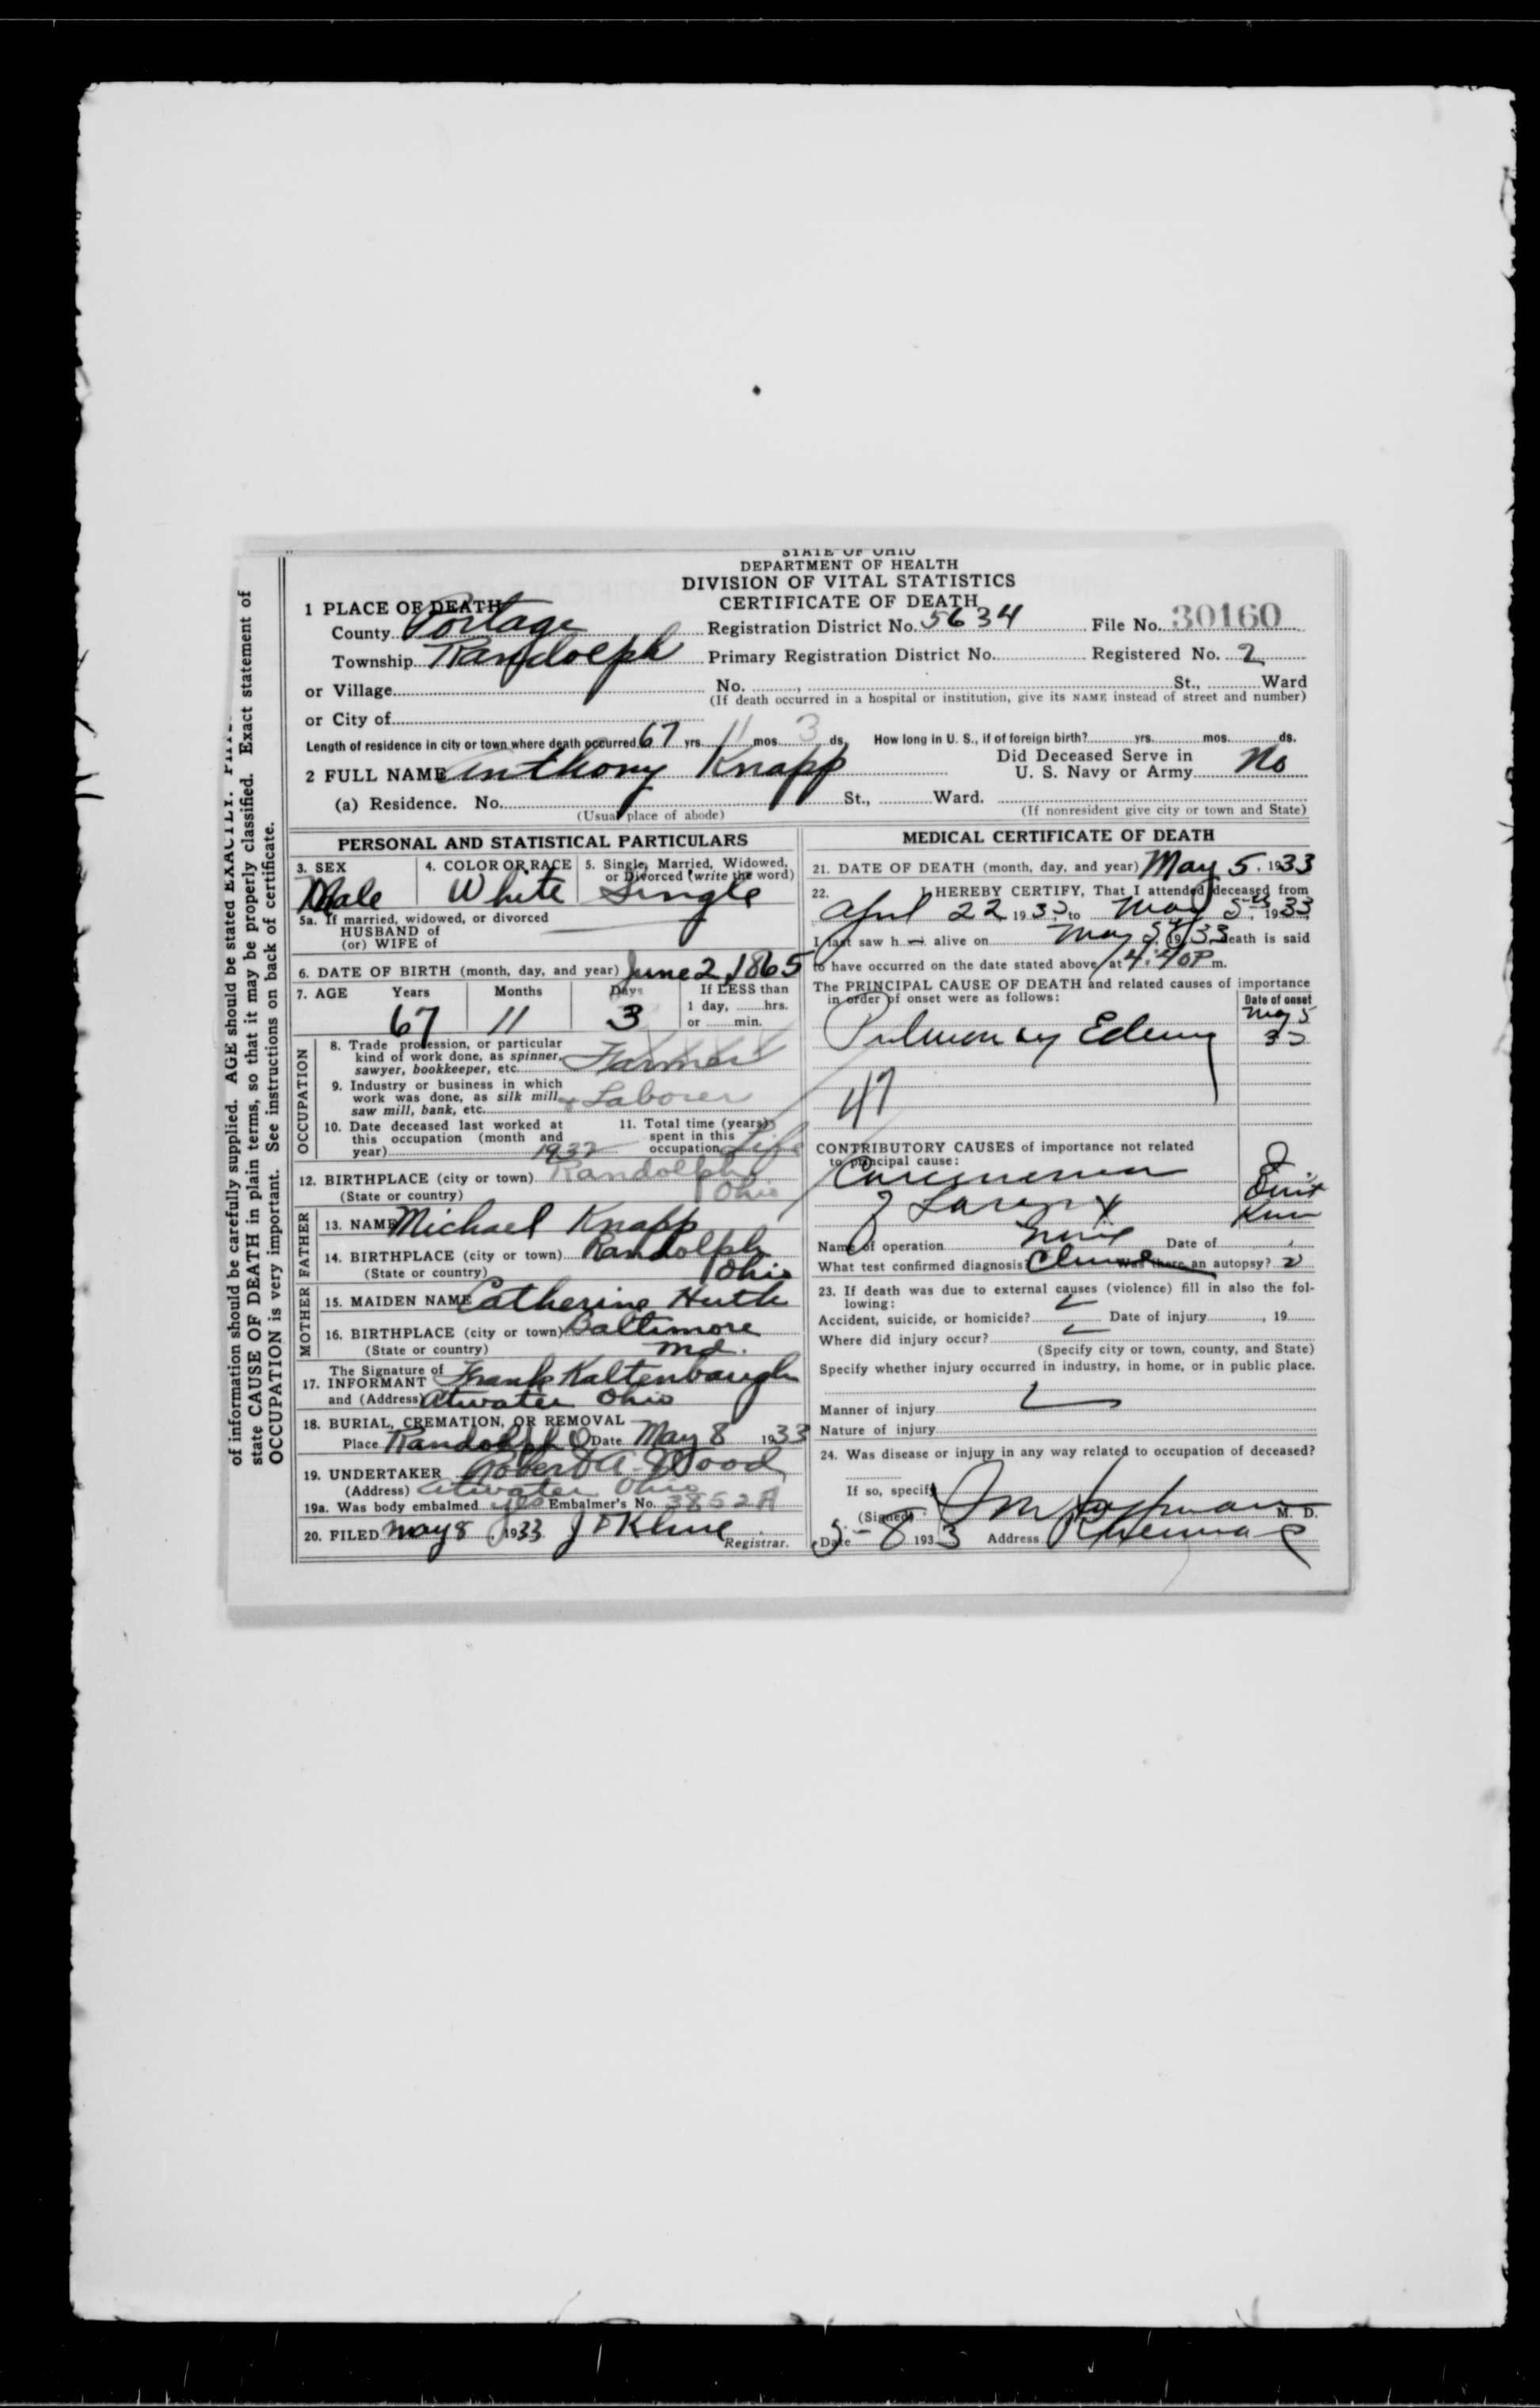 STATE OF OHIO
DEPARTMENT OF HEALTH
DIVISION OF VITAL STATISTICS
CERTIFICATE OF DEATH
1 PLACE OF DEATH
County Portage Registration District No. 5634 File No. 30160
Township Randolph Primary Registration District No. Registered No. 2
or Village No. , St., Ward
(If death occurred in a hospital or institution, give its NAME instead of street and number)
or City of
Length of residence in city or town where death occurred 67 yrs. 11 mos. 3 ds. How long in U. S., if of foreign birth? yrs. mos. ds.
2 FULL NAME Anthony Knapp Did Deceased Serve in U. S. Navy or Army No
(a) Residence. No. St., Ward.
(Usual place of abode) (If nonresident give city or town and State)
PERSONAL AND STATISTICAL PARTICULARS
3. SEX Male
4. COLOR OR RACE White
5. Single, Married, Widowed, or Divorced (write the word) Single
5a. If married, widowed, or divorced
HUSBAND of
(or) WIFE of
6. DATE OF BIRTH (month, day, and year) June 2, 1865
7. AGE Years Months Days If LESS than
67 11 3 1 day, hrs.
or min.
OCCUPATION
8. Trade profession, or particular
kind of work done, as spinner,
sawyer, bookkeeper, etc. Farmer
9. Industry or business in which
work was done, as silk mill,
saw mill, bank, etc. + Laborer
10. Date deceased last worked at
this occupation (month and
year) 1932
11. Total time (years)
spent in this
occupation Life
12. BIRTHPLACE (city or town) Randolph
(State or country) Ohio
FATHER
13. NAME Michael Knapp
14. BIRTHPLACE (city or town) Randolph
(State or country) Ohio
MOTHER
15. MAIDEN NAME Catherine Huth
16. BIRTHPLACE (city or town) Baltimore
(State or country) Md.
The Signature of
17. INFORMANT Frank Kaltenbaugh
and (Address) Atwater Ohio
18. BURIAL, CREMATION, OR REMOVAL
Place Randolph O Date May 8 1933
19. UNDERTAKER Robert A. Wood
(Address) Atwater Ohio
19a. Was body embalmed yes Embalmer's No. 3852A
20. FILED May 8, 1933 J D Kline
Registrar.
MEDICAL CERTIFICATE OF DEATH
21. DATE OF DEATH (month, day, and year) May 5, 1933
22. I HEREBY CERTIFY, That I attended deceased from
April 22, 1933, to May 5th, 1933
I last saw h alive on May 5th, 1933 death is said
to have occurred on the date stated above, at 4:40 P m.
The PRINCIPAL CAUSE OF DEATH and related causes of importance
in order of onset were as follows:
Date of onset
May 5
33
Pulmonary Edema
47
CONTRIBUTORY CAUSES of importance not related
to principal cause:
Carcinoma
of Larynx
Name of operation None Date of
What test confirmed diagnosis? Clinical Was there an autopsy?
23. If death was due to external causes (violence) fill in also the fol-
lowing:
Accident, suicide, or homicide? Date of injury , 19
Where did injury occur?
(Specify city or town, county, and State)
Specify whether injury occurred in industry, in home, or in public place.
Manner of injury
Nature of injury
24. Was disease or injury in any way related to occupation of deceased?
If so, specify
(Signed) M. D.
Date 5-8 1933 Address
of information should be carefully supplied. AGE should be stated EXACTLY.
state CAUSE OF DEATH in plain terms, so that it may be properly classified. Exact statement of
OCCUPATION is very important. See instructions on back of certificate.